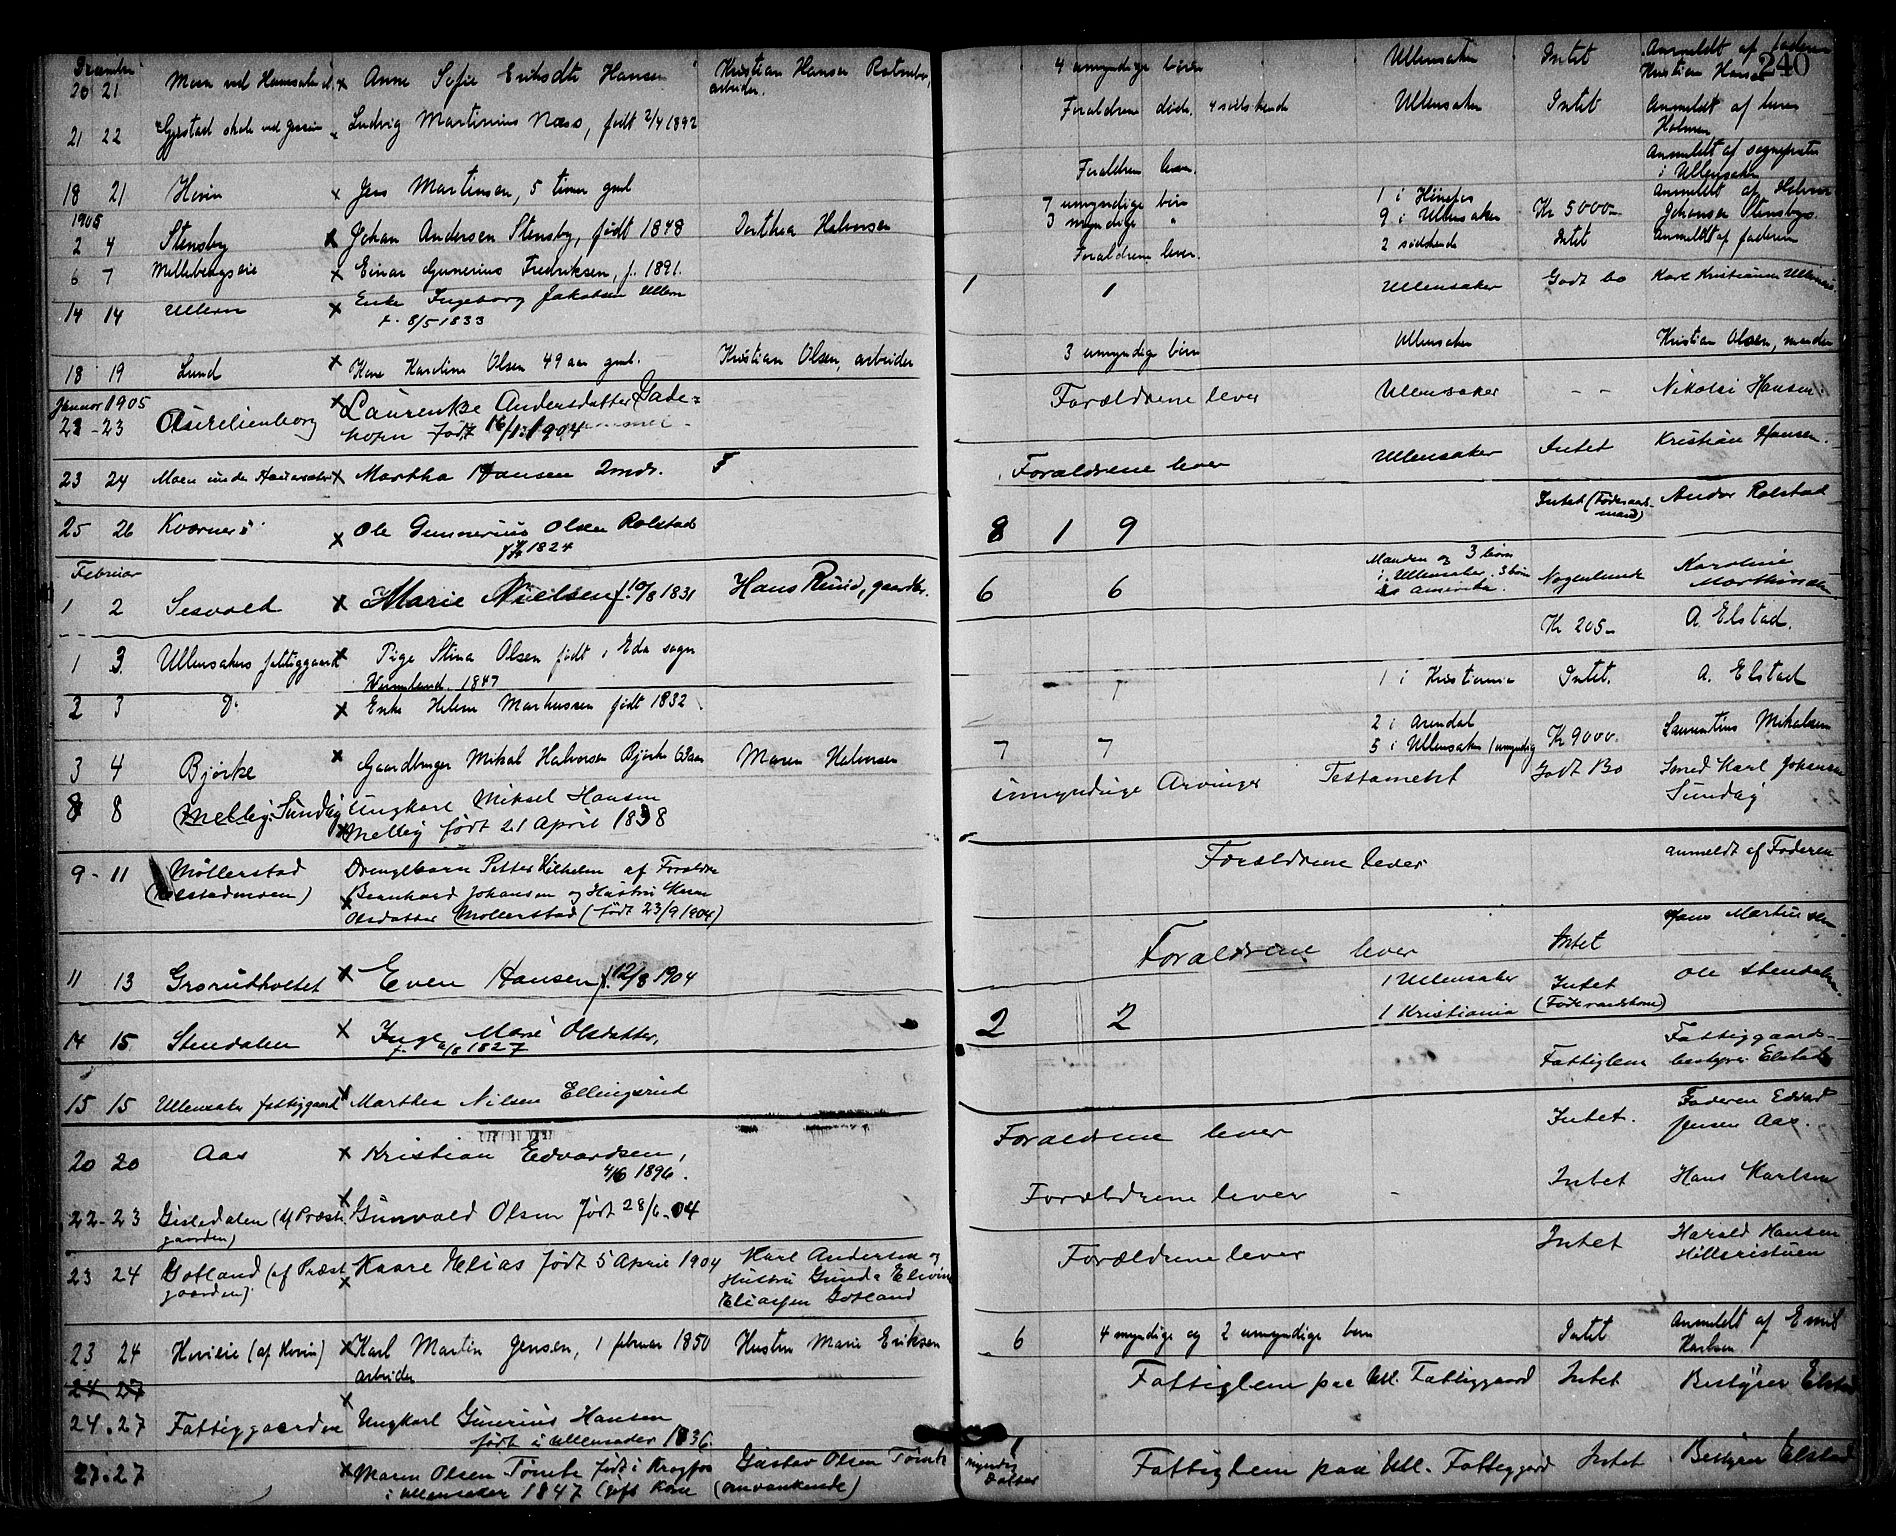 December
20 21 Moen ved Hauersæter x Anne Sofie Eriksdtr Hansen Kristian Hansen
arbeider.
4 umyndige børn Ullensaker Intet Anmeldt af faderen
Kristian Hansen
240
21 22 Gjestad skole ved x Ludvig Martinius Næss, født 2/4 1892
Forældrene døde. 4 sødskende Ullensaker Intet Anmeldt af
Holmen
18 21 Hovin x Jens Martinsen, 5 timer gml
Forældrene lever. Anmeldt af sogneprsten
i Ullensaker
1905
2 4 Stensby x Johan Andersen Stensby, født 1848 Dorthea Halvorsen
7 umyndige børn 1 i Hønefos anmeldt af Halvor
3 myndige " 9 i Ullensaker Kr 5000 Johansen Stensby
6 7 Mellebergseie x Einar Gunerius Fredriksen, f. 1891.
Forældrene lever. 2 sødskende Intet anmeldt af faderen
14 14 Ullern x Enke Ingeborg Jakobsen Ullern
f. 8/5 1833
1 1 Ullensaker Godt bo Karl Kristiansen
18 19 Lund x Karoline Olsen 49 aar gml. Kristian Olsen, arbeider
3 umyndige børn Ullensaker Kristian Olsen,
Januar 1905
23 - 23 Aurelienborg x Laurenke Andersdatter Jade=
født 16/ 1904
Forældrene lever Ullensaker - - Nikolai Hansen
23 24 Moen under Hauersæter x Martha Hansen 2 mdr.
Forældrene lever Ullensaker Intet Kristian Hansen.
25 26 Kværner x Ole Gunnerius Olsen Rolstad
1824
8 1 9 Intet (Føderaads-
mand) Andor Rolstad
Februar
1 2 Sesvold x Marie Nielsen f. 10/8 1831 Hans Ruud, gaardbr.
6 6 Manden og 3 børn
i Ullensaker. 3 børn
i Amerika. Karoline
Marthinsen
1 3 Ullensakers fattiggaard x Pige Stina Olsen født i Eda sogn
Wermland 1847
Kr 205- A. Elstad.
2 3 D. x Enke Helene Markussen født 1832
1 i Kristiania Intet. A. Elstad
3 4 Bjørke x Gaardbruger Mikal Halvorsen Bjørke 63 aar Maren Halvorsen
7 7 2 i Arendal
5 i Ullensaker 1 umyndig Kr 9000. Laurentius Mikalsen
8 8 Melby. Sundby x Ungkarl Mikael Hansen
Melby født 21 April 1838
umyndige Arvinger Testament Godt Bo Smed Karl Johansen
Sundby
9 - 11 Møllerstad
(Elstadmoen) x Drengebarn Petter Vilhelm af Forældre
Bernhard Johansen og Hustru
Olsdatter Møllerstad (født 23/9 1904)
Forældrene lever anmeldt af Faderen
11 13 Grorudholtet x Even Hansen f. 12/8 1904
Forældrene lever Intet Hans Martinsen
14 15 Stendalen x Inge Marie Olsdatter,
f. /8 1827
2 2 1 Ullensaker
1 Kristiania Intet
(Føderaadskone) Ole Stendalen.
15 15 Ullensaker fattiggaard x Marthea Nilsen Ellingsrud
Fattiglem Fattiggaards-
bestyrer Elstad
20 20 Aas x Kristian Edvardsen,
4/6 1896.
Forældrene lever Intet. Faderen Edvard
Jensen Aas.
22 - 23 Gisledalen (u/ Præste
gaarden) x Gunvald Olsen født 28/6 - 04
Forældrene lever - Intet Hans Karlsen
23 24 Gotland (af Præste
gaarden) x Kaare Elias født 5 April 1904 Karl Andersen og
Hustru Gunda
Eliassen Gotland
Forældrene lever Intet Harald Hansen
23 24 Hovieie (af Hovin) x Karl Martin Jensen, 1 februar 1850
arbeider Hustru Marie Eriksen
6 4 myndige og 2 umyndige børn Intet Anmeldt af Emil
Karlsen
24 27
24 . 27 Fattiggaarden x Ungkarl Gunerius Hansen
født i Ullensaker 1836.
Fattiglem paa Ull. Fattiggaard Intet Bestyrer Elstad
27 . 27 x Maren Olsen født i Krogfos
i Ullensaker 1847 (gift Kone Gustav Olsen
(omvankende)
1
myndig
Datter Fattiglem paa Ull. Fattiggaard Intet Bestyrer Elstad